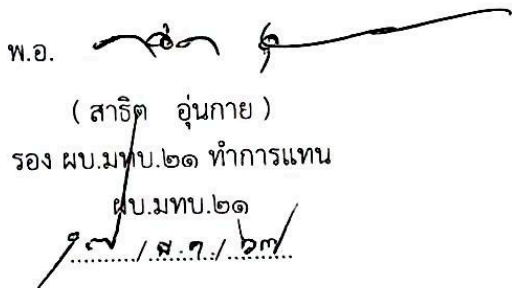 พ.อ.
( สาธิต อุ่นกาย )
รอง ผบ.มทบ.๒๑ ทำการแทน
ผบ.มทบ.๒๑
/ ส.ค. / ๖๓